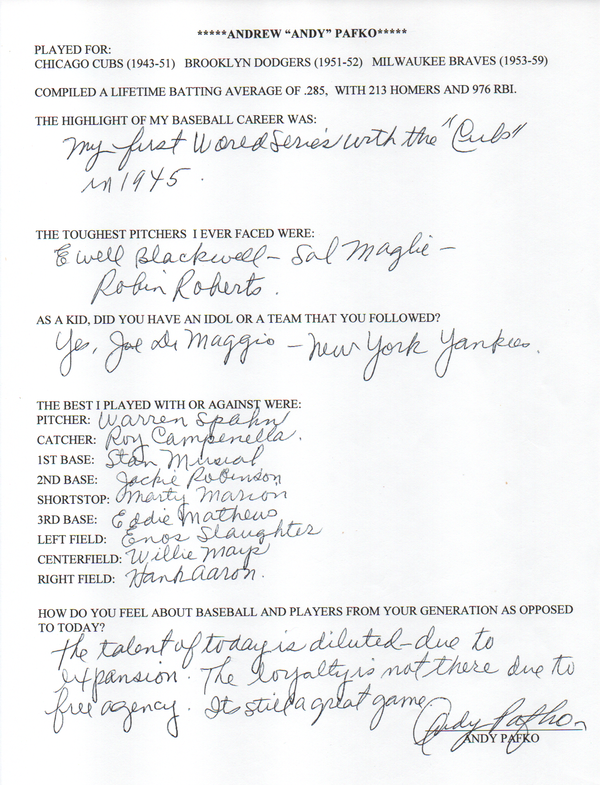 *****ANDREW “ANDY” PAFKO*****
PLAYED FOR:
CHICAGO CUBS (1943-51) BROOKLYN DODGERS (1951-52) MILWAUKEE BRAVES (1953-59)
COMPILED A LIFETIME BATTING AVERAGE OF .285, WITH 213 HOMERS AND 976 RBI.
THE HIGHLIGHT OF MY BASEBALL CAREER WAS:
My first World Series with the "Cubs"
in 1945.
THE TOUGHEST PITCHERS I EVER FACED WERE:
Ewell Blackwell - Sal Maglie -
Robin Roberts.
AS A KID, DID YOU HAVE AN IDOL OR A TEAM THAT YOU FOLLOWED?
Yes, Joe Di Maggio - New York Yankees.
THE BEST I PLAYED WITH OR AGAINST WERE:
PITCHER: Warren Spahn
CATCHER: Roy Campenella.
1ST BASE: Stan Musial
2ND BASE: Jackie Robinson
SHORTSTOP: Marty Marion
3RD BASE: Eddie Mathews
LEFT FIELD: Enos Slaughter
CENTERFIELD: Willie Mays
RIGHT FIELD: Hank Aaron.
HOW DO YOU FEEL ABOUT BASEBALL AND PLAYERS FROM YOUR GENERATION AS OPPOSED
TO TODAY?
The talent of today is diluted - due to
expansion. The loyalty is not there due to
free agency. Its still a great game.
Andy Pafko
ANDY PAFKO